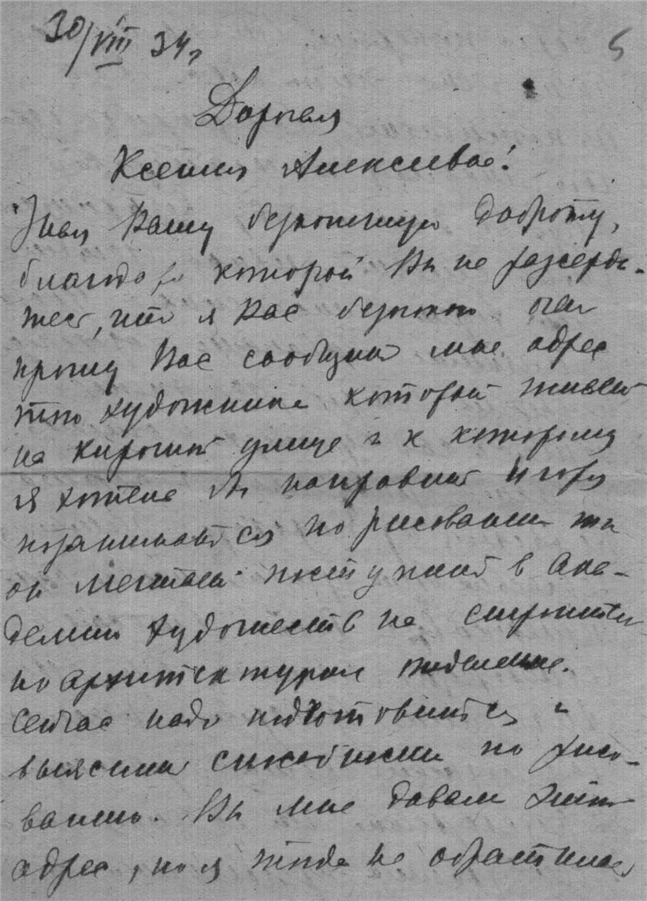 30/VIII 34 г
5
Дорогая
Ксения Алексеевна!
Зная Вашу бесконечную доброту,
благодаря которой Вы не рассерди-
тесь, что я Вас беспокою очень
прошу Вас сообщить мне адрес
того художника который живет
на Кирочной улице и к которому
я хотела бы направить Игоря
позаниматься по рисованию
он мечтает поступить в Ака-
демию художеств на строитель
но архитектурное отделение.
Сейчас надо подготовиться и
выяснить способности по рисо-
ванию. Вы мне давали этот
адрес, но я тогда не обратилась